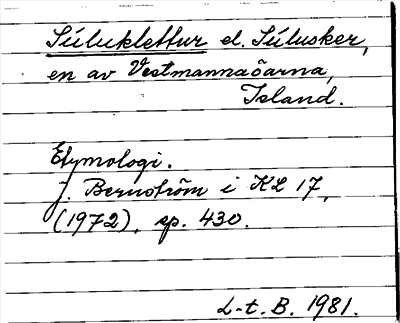 Súluklettur el. Súlusker,
en av Vestmannaöarna,
Island.
Etymologi.
J. Bernström i KL 17,
(1972), sp. 430.
L-t. B. 1981.